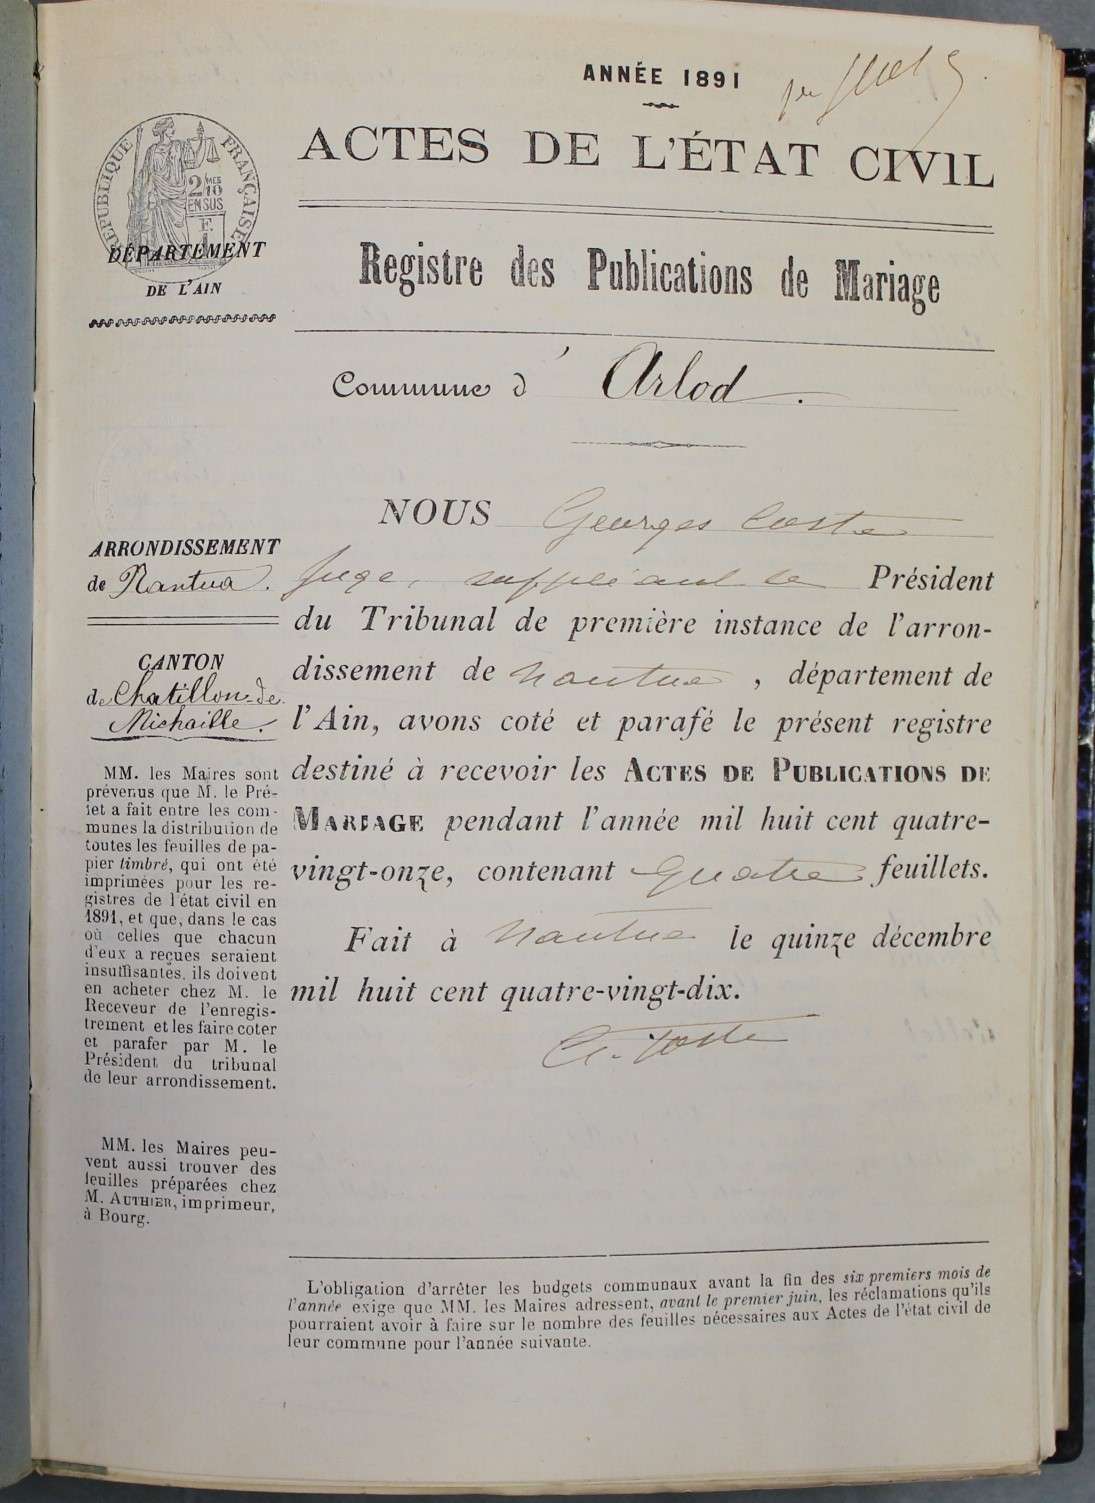 ANNÉE 1891
ACTES DE L'ÉTAT CIVIL
RÉPUBLIQUE FRANÇAISE
2/10 MES
EN SUS
DÉPARTEMENT
DE L'AIN
Registre des Publications de Mariage
Commune d' Arlod.
ARRONDISSEMENT
de Nantua.
CANTON
de Chatillon-de-
Michaille.
MM. les Maires sont
prévenus que M. le Pré-
fet a fait entre les com-
munes la distribution de
toutes les feuilles de pa-
pier timbré, qui ont été
imprimées pour les re-
gistres de l'état civil en
1891, et que, dans le cas
où celles que chacun
d'eux a reçues seraient
insuffisantes, ils doivent
en acheter chez M. le
Receveur de l'enregis-
trement et les faire coter
et parafer par M. le
Président du tribunal
de leur arrondissement.
MM. les Maires peu-
vent aussi trouver des
feuilles préparées chez
M. AUTHIER, imprimeur,
à Bourg.
NOUS Georges Coste
Juge, suppléant le Président
du Tribunal de première instance de l'arron-
dissement de Nantua, département de
l'Ain, avons coté et parafé le présent registre
destiné à recevoir les ACTES DE PUBLICATIONS DE
MARIAGE pendant l'année mil huit cent quatre-
vingt-onze, contenant Quatre feuillets.
Fait à Nantua le quinze décembre
mil huit cent quatre-vingt-dix.
G. Coste
L'obligation d'arrêter les budgets communaux avant la fin des six premiers mois de
l'année exige que MM. les Maires adressent, avant le premier juin, les réclamations qu'ils
pourraient avoir à faire sur le nombre des feuilles nécessaires aux Actes de l'état civil de
leur commune pour l'année suivante.